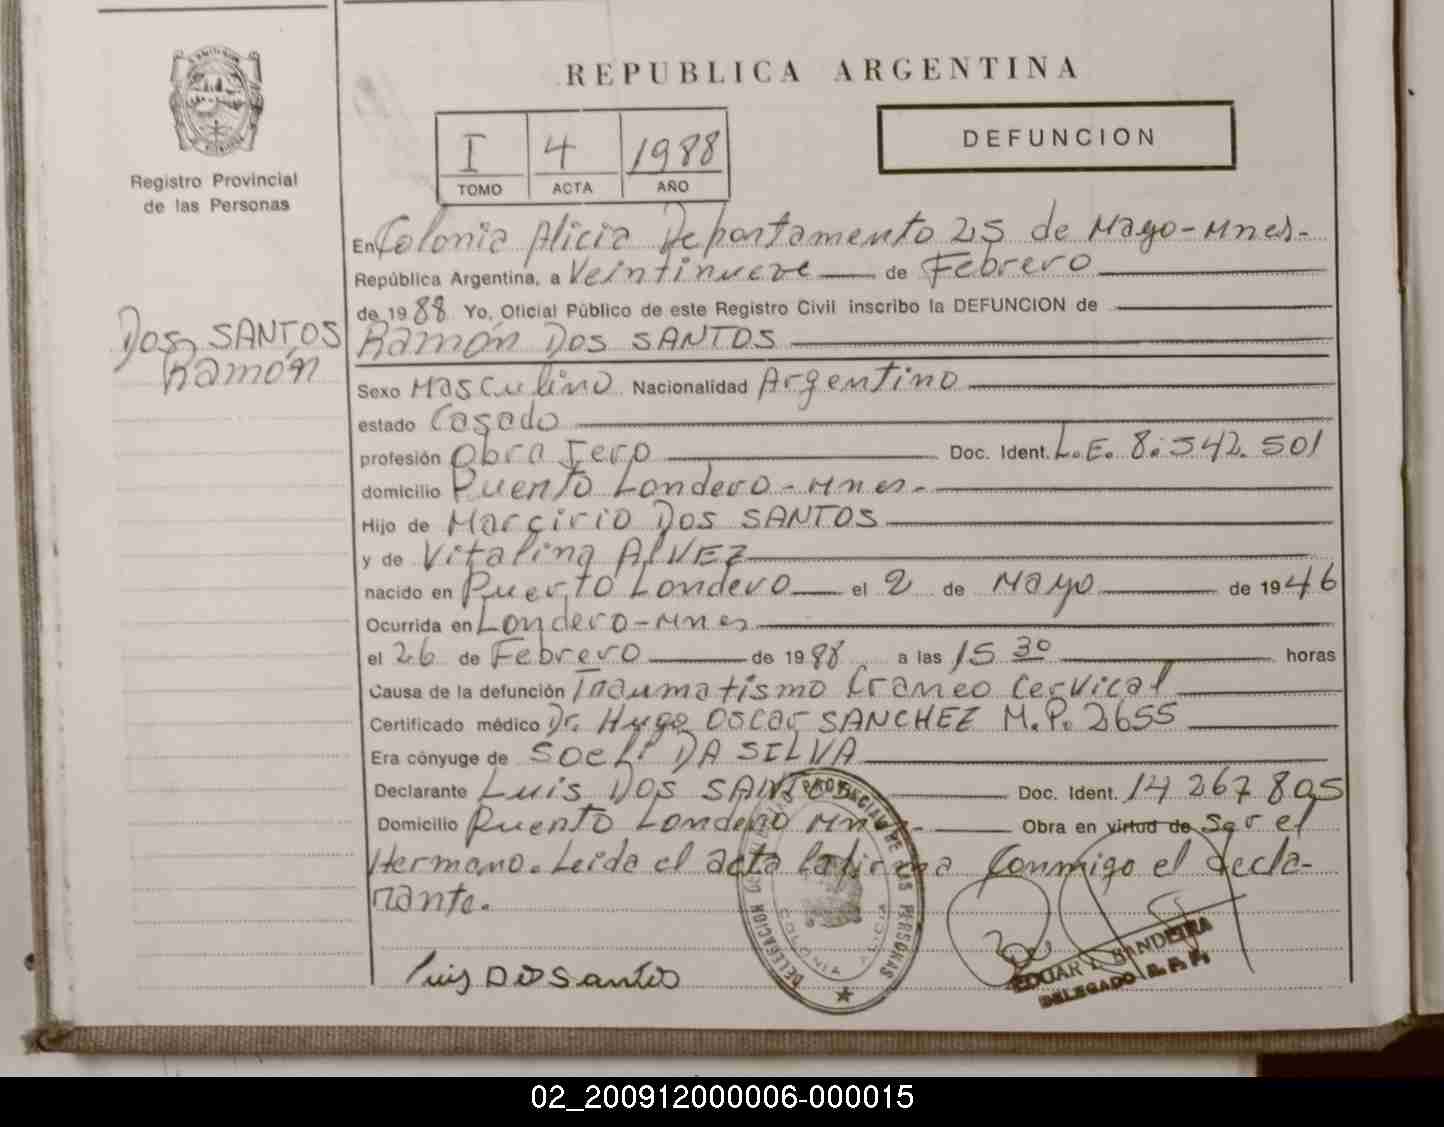 REPUBLICA ARGENTINA
I 4 1988
TOMO ACTA AÑO
DEFUNCION
Registro Provincial
de las Personas
DOS SANTOS
Ramón
En Colonia Alicia Departamento 25 de Mayo-Mnes-
República Argentina, a Veintinueve de Febrero
de 1988 Yo, Oficial Público de este Registro Civil inscribo la DEFUNCION de
Ramón DOS SANTOS
Sexo Masculino Nacionalidad Argentino
estado Casado
profesión Obrajero Doc. Ident. L.E. 8.542.501
domicilio Puerto Londero-Mnes-
Hijo de Marcirio DOS SANTOS
y de Vitalina ALVEZ
nacido en Puerto Londero el 2 de Mayo de 1946
Ocurrida en Londero-Mnes
el 26 de Febrero de 1988 a las 15 30 horas
Causa de la defunción Traumatismo Craneo Cervical
Certificado médico Dr. Hugo Oscar SANCHEZ M.P. 2655
Era cónyuge de SOELI DA SILVA
Declarante Luis DOS SANTOS Doc. Ident. 14 267 895
Domicilio Puerto Londero Mnes- Obra en virtud de Ser el
Hermano. Leida el acta la firma Conmigo el decla-
rante.
Luis DoSantos
DELEGACION PROVINCIAL DE LAS PERSONAS
COLONIA ALICIA
EDGAR BANDEIRA
DELEGADO R.P.P.
02_200912000006-000015